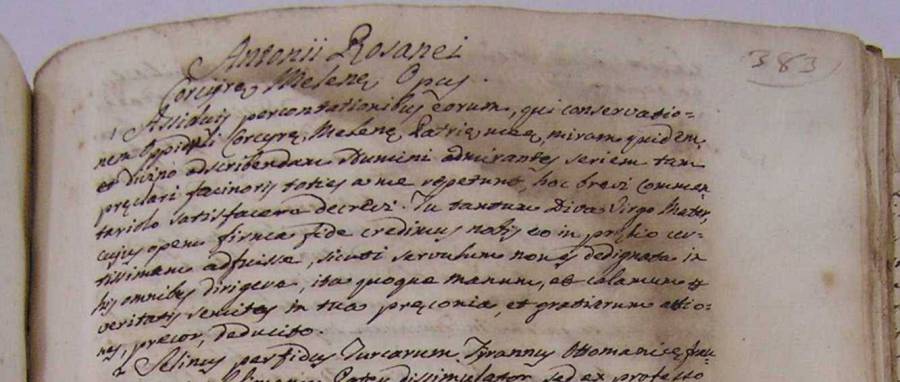 383
Antonii Rosanei
Corcyrę Melenę Opus.
1 Assiduis percontationibus eorum, qui conservatio-
nem Oppiduli Corcyrę Melenę, Patrię meę, miram quidem,
et Divino adscribendam Numini admirantes seriem tam
pręclari facinoris toties a me repetunt, hoc brevi commen
tariolo satisfacere decrevi. Tu tantum Diva Virgo Mater,
cujus opem firma fide credimus nobis eo in pręlio cer-
tissimam adfuisse, sicuti servulum non es dedignata in
his omnibus dirigere, ita quoque manum, et calamum
veritatis semitas in tua pręconia, et gratiarum actio-
nes, precor, deducito.
2 Selinus perfidus Turcarum Tyrannus Ottomanicę
Pater dissimulator, sed ex professo